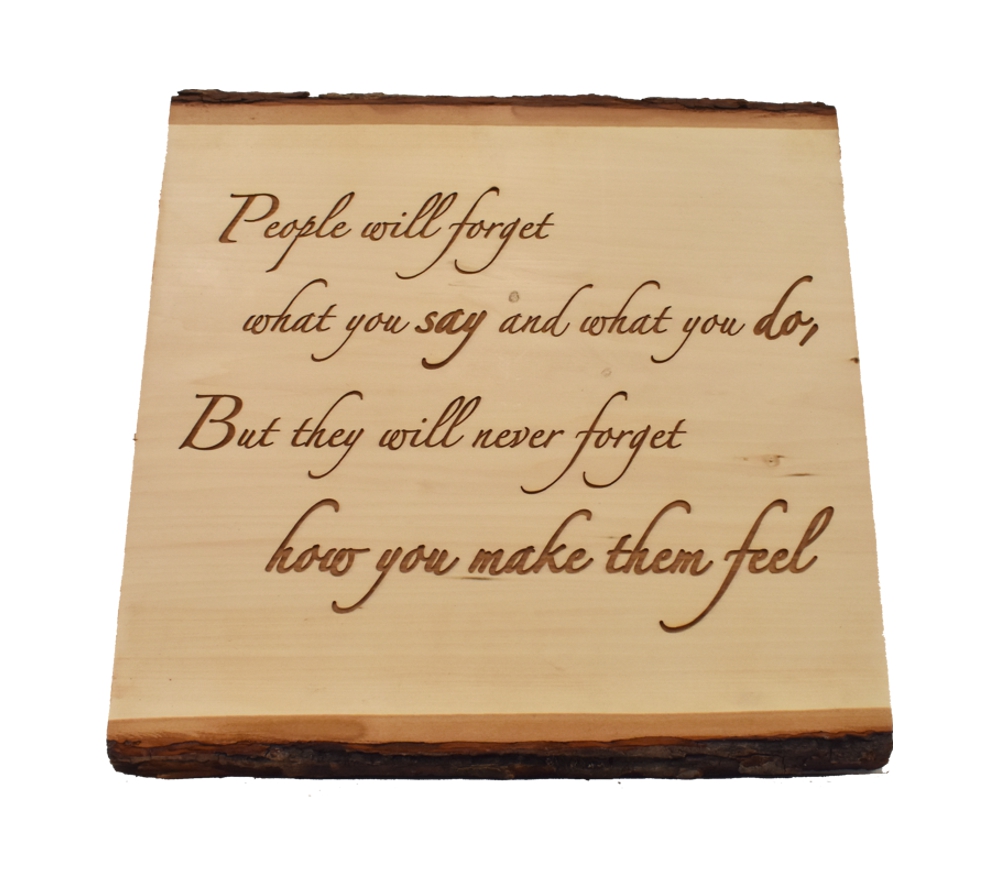 People will forget
what you say and what you do,
But they will never forget
how you make them feel